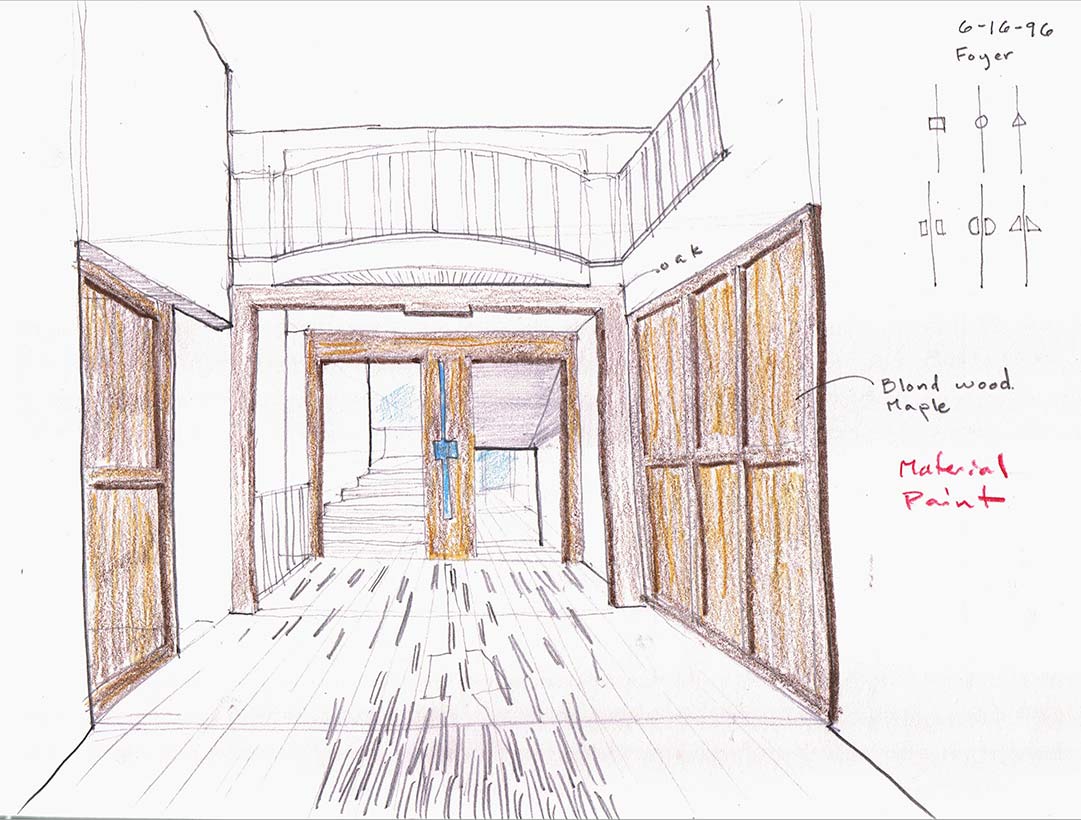 6-16-96
Foyer
oak
Blond wood.
Maple
Material
Paint